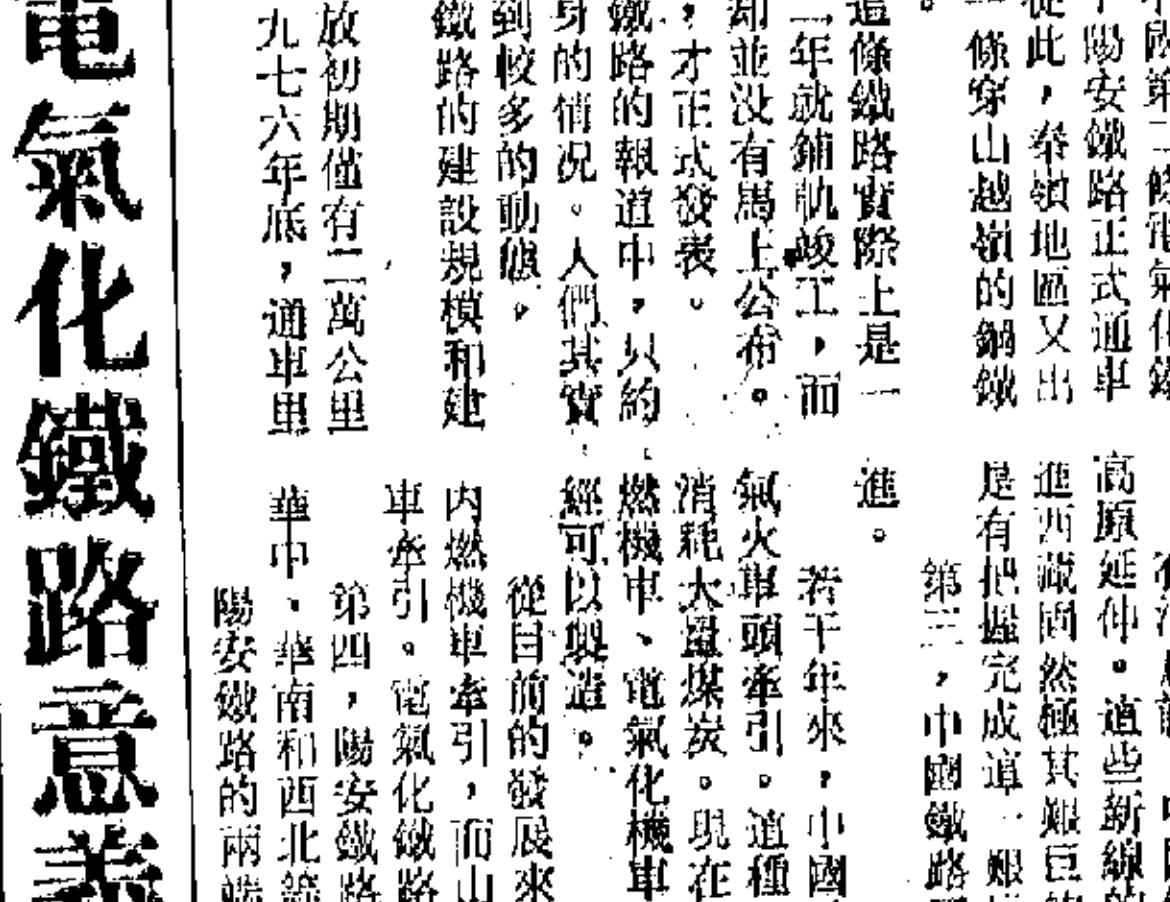 國第二條電氣化鐵
陽安鐵路正式通車
從此，秦嶺地區又出
一條穿山越嶺的鋼鐵
。
這條鐵路實際上是一
二年就鋪軌竣工，而
却並没有馬上公布。
，才正式發表。
鐵路的報道中，只約
身的情况。人們其實
到較多的動態，
鐵路的建設規模和建
放初期僅有二萬公里
九七六年底，通車里
高原延伸。這些新線的
進西藏固然極其艱巨
是有把握完成這一艱
第三，中國鐵路
進。
若干年來，中國
氣火車頭牽引。這種
消耗大量煤炭。現在
燃機車、電氣化機車
經可以製造。
從目前的發展來
内燃機車牽引，而山
車牽引。電氣化鐵路
第四，陽安鐵路
華中、華南和西北
陽安鐵路的兩端
電氣化鐵路意義